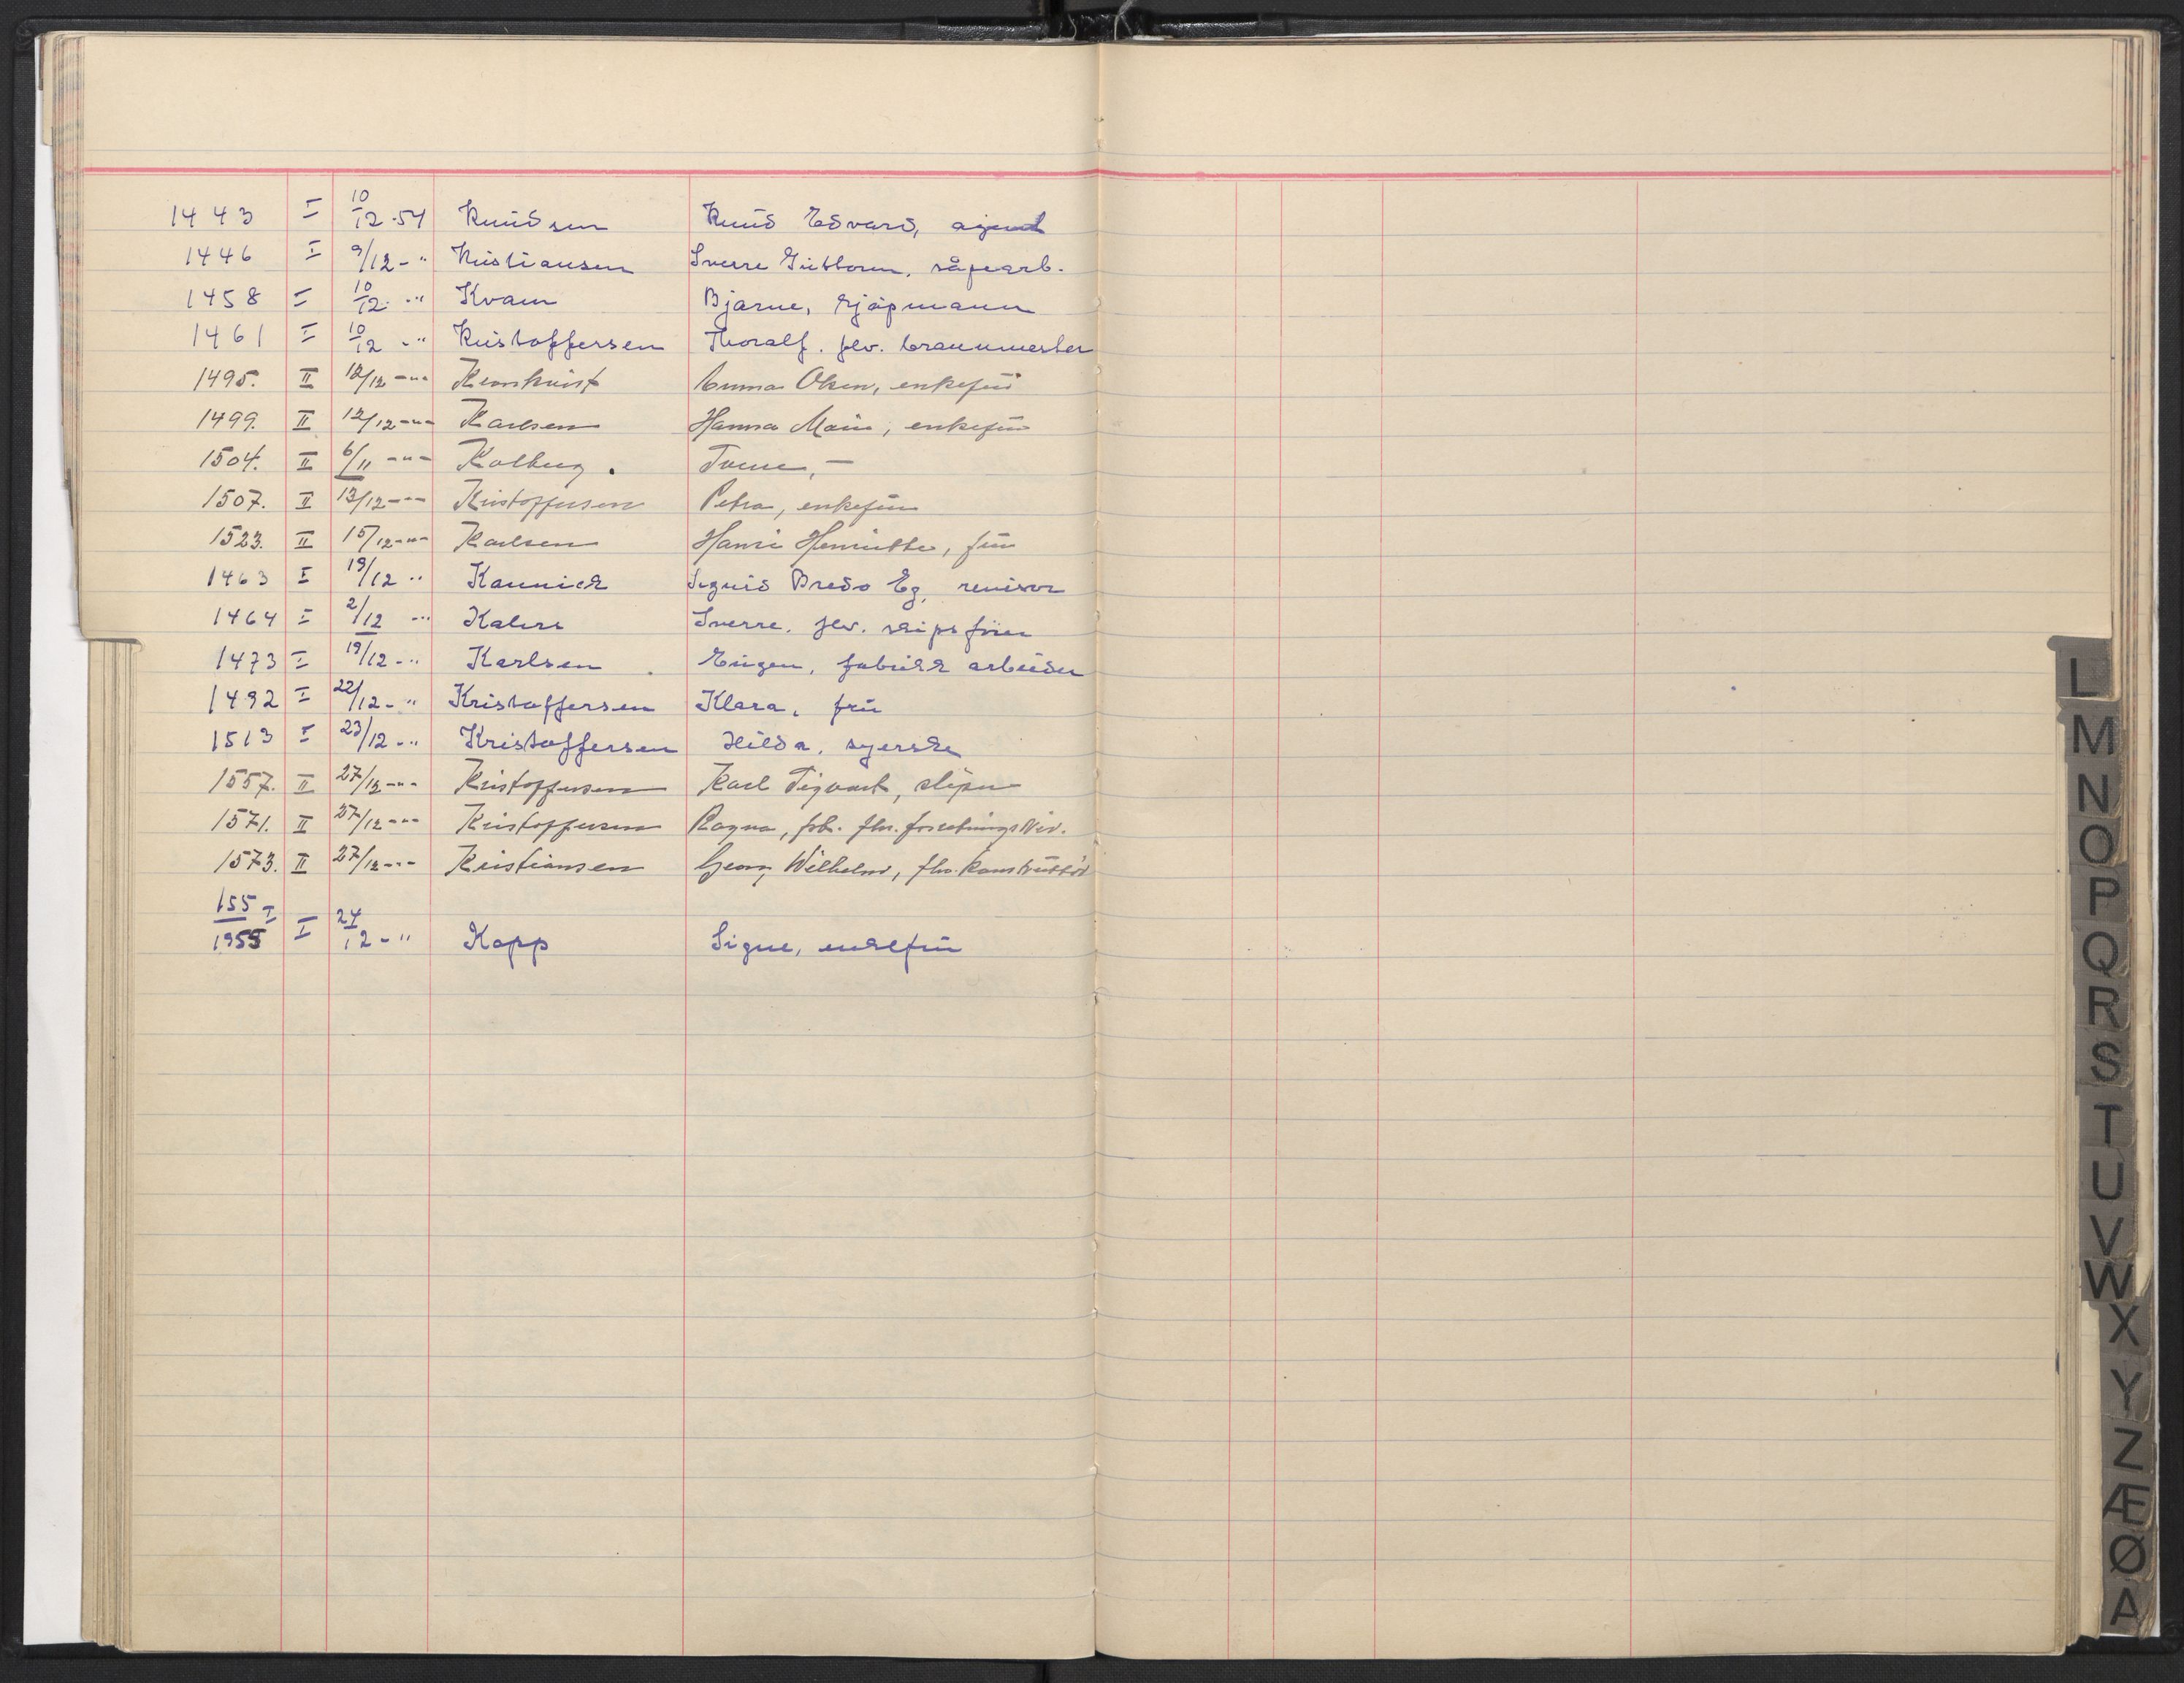 1443 I 10/12-54 Knudsen Knud Edvard, agent
1446 I 9/12-" Kristiansen Sverre Guttorm, såpearb.
1458 I 10/12-" Kvam Bjarne, kjøpmann
1461 I 10/12-" Kristoffersen Thoralf. flv. brannmester
1495. II 12/12-"- Kronkvist Emma Olsen, enkefru
1499. II 12/12-"- Karlsen Hanna Marie, enkefru
1504. II 6/11-"- Kolberg.
1507. II 13/12-"- Kristoffersen Petra, enkefru
1523. II 15/12-"- Karlsen Henriette, fru
1463 I 19/12 " Kannick Sigurd Bredo Eg, revisor
1464 I 2/12-" Sverre. flv. skipsfører
1473 I 19/12-" Karlsen Eugen, fabrikkarbeider
1492 I 22/12-" Kristoffersen Klara, fru
1513 I 23/12-" Kristoffersen Hilda, syerske
1557. II 27/12-"- Kristoffersen Karl Sigvart, sliper
1571. II 27/12-"- Kristoffersen Ragna, fhv. forretningsdriv.
1573. II 27/12-"- Kristiansen Georg Wilhelm, fhv. konstruktør
155 I
1955 I 24/12-" Kopp Signe, enkefru
L
M
N
O
P
Q
R
S
T
U
V
W
X
Y
Z
Æ
Ø
A